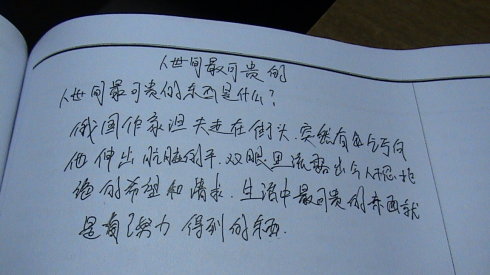 人世间最可贵的
人世间最可贵的东西是什么?
俄国作家坦夫走在街头,突然有个乞丐向
他伸出肮脏的手,双眼里流露出令人忍
的希望和请求.生活中最可贵的东西就
是自己努力得到的东西.